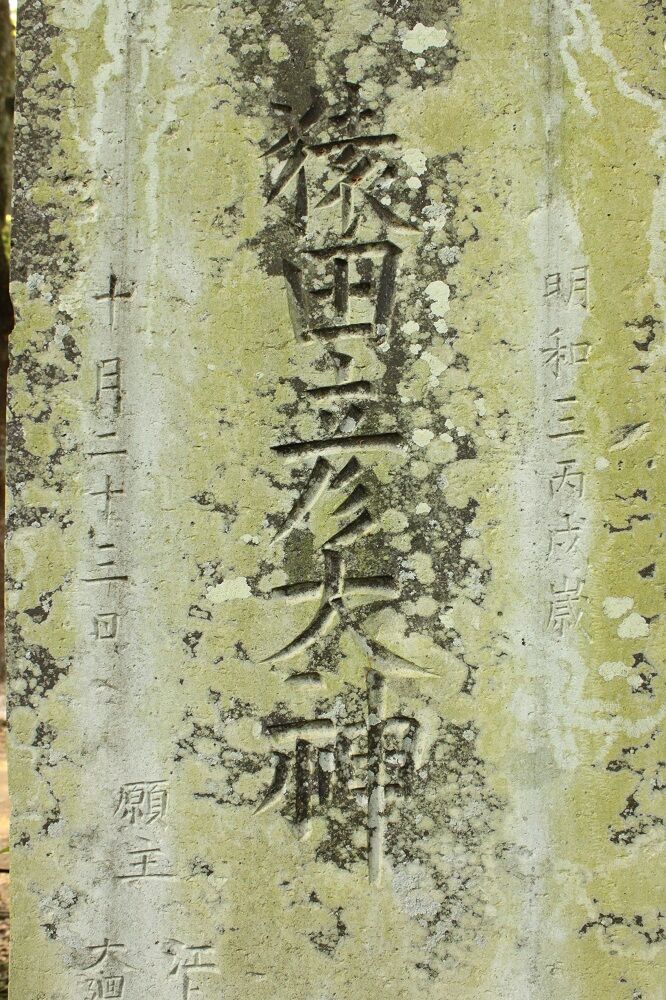 明和三丙戌歳
猿田彦大神
十月二十三日
願主
江
大